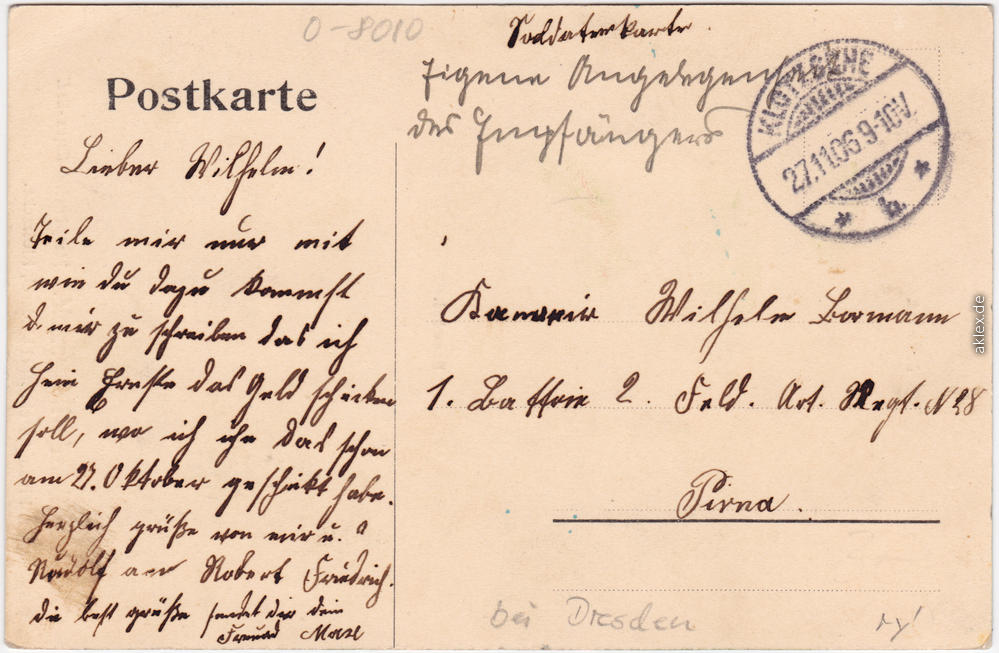 0-8010
Soldatenkarte.
Eigene Angelegenheit
des Empfängers
Postkarte
KLOTZSCHE
27.11.06.9-10V.
* b. *
Lieber Wilhelm!
Teile mir nur mit
wie du dazu kommst
d. mir zu schreiben das ich
Herrn das Geld schicken
soll, wo ich ihn das schon
am 27. Oktober geschikt habe.
Herzlich grüße von mir u.
Rudolf an Robert Friedrich.
die best grüße sendet dir dein
Freund Max
Kanonir Wilhelm Bormann
1. Battrie 2. Feld. Art. Regt. N 28
Pirna.
bei Dresden
aklex.de